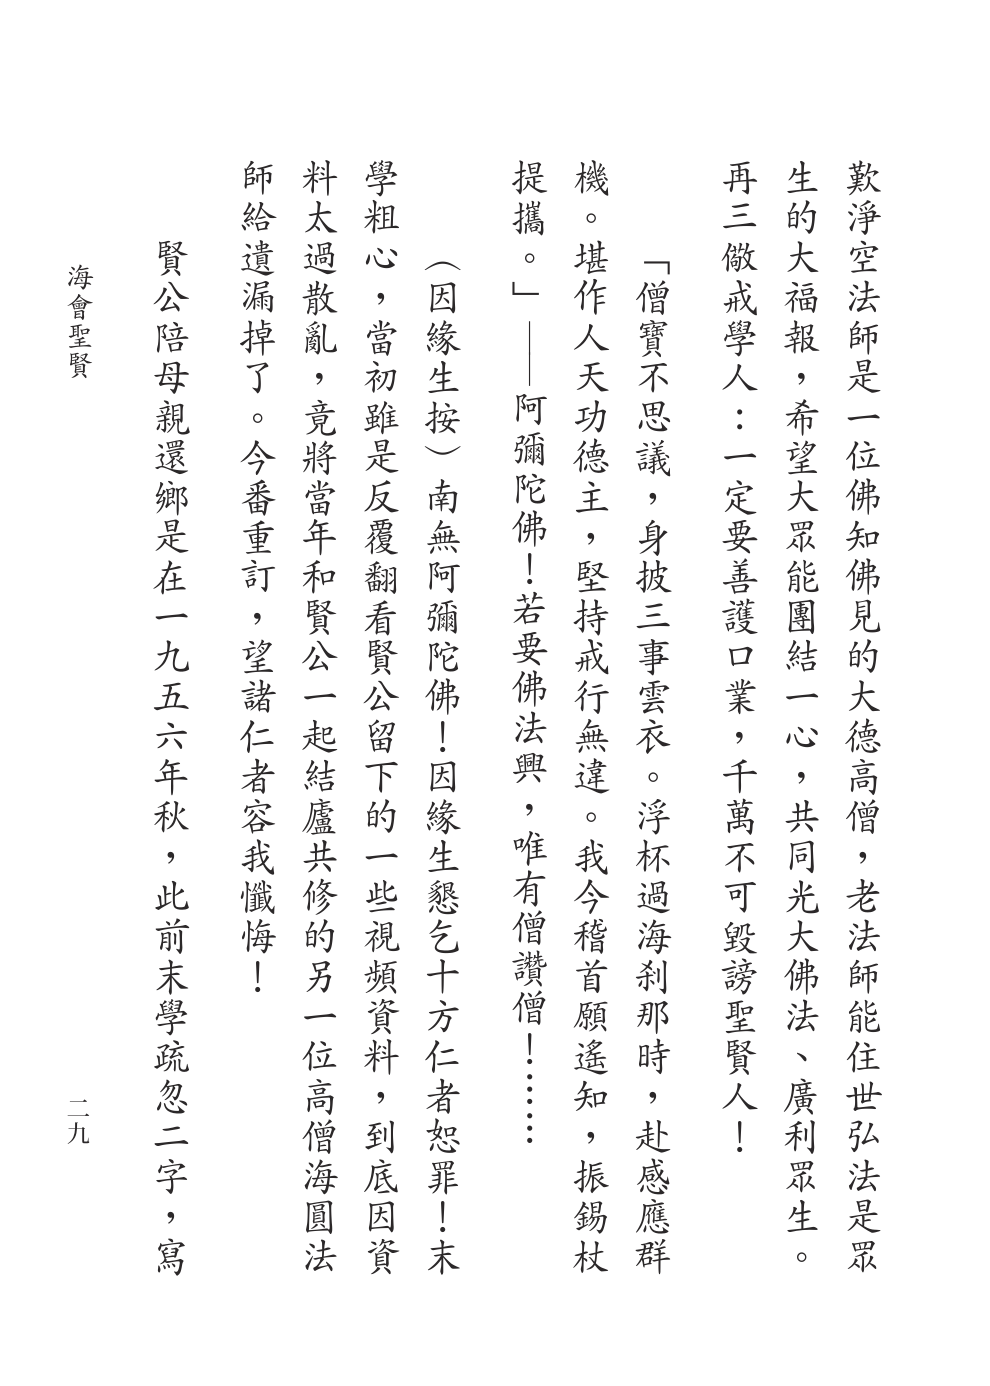 歎淨空法師是一位佛知佛見的大德高僧，老法師能住世弘法是眾
生的大福報，希望大眾能團結一心，共同光大佛法、廣利眾生。
再三儆戒學人：一定要善護口業，千萬不可毀謗聖賢人！
「僧寶不思議，身披三事雲衣。浮杯過海剎那時，赴感應群
機。堪作人天功德主，堅持戒行無違。我今稽首願遙知，振錫杖
提攜。」——阿彌陀佛！若要佛法興，唯有僧讚僧！……
（因緣生按）南無阿彌陀佛！因緣生懇乞十方仁者恕罪！末
學粗心，當初雖是反覆翻看賢公留下的一些視頻資料，到底因資
料太過散亂，竟將當年和賢公一起結廬共修的另一位高僧海圓法
師給遺漏掉了。今番重訂，望諸仁者容我懺悔！
賢公陪母親還鄉是在一九五六年秋，此前末學疏忽二字，寫
海會聖賢
二九